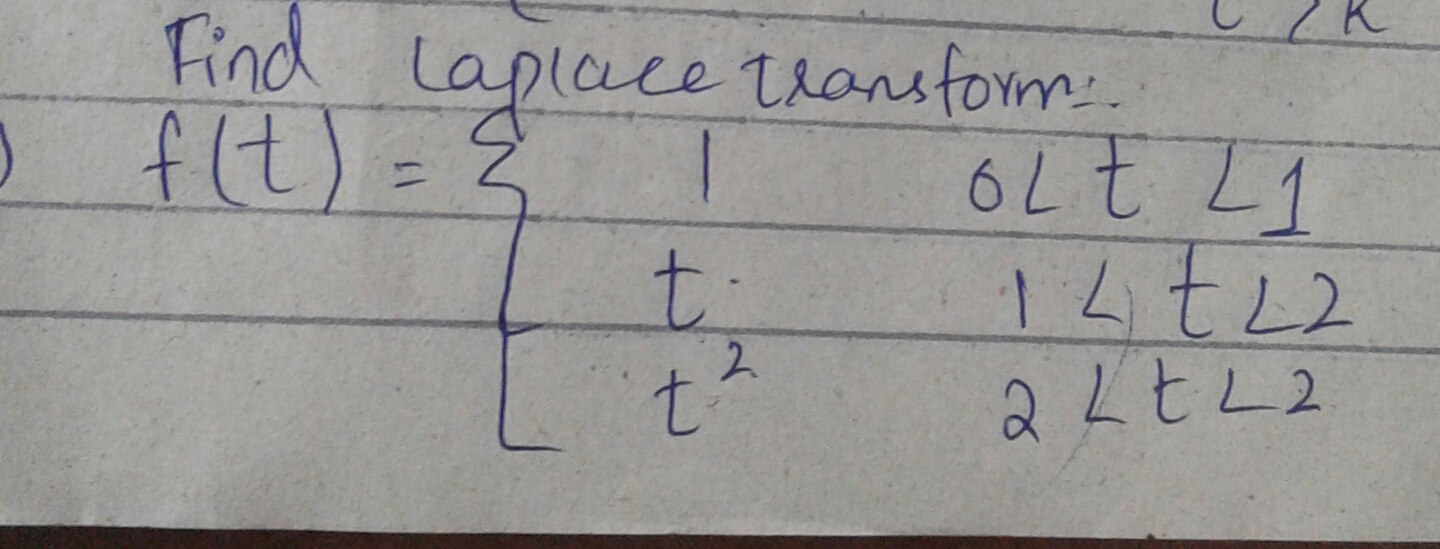 Find Laplace transform:.
) f(t) = { 1 0 < t < 1
t 1 < t < 2
t² 2 < t < 2